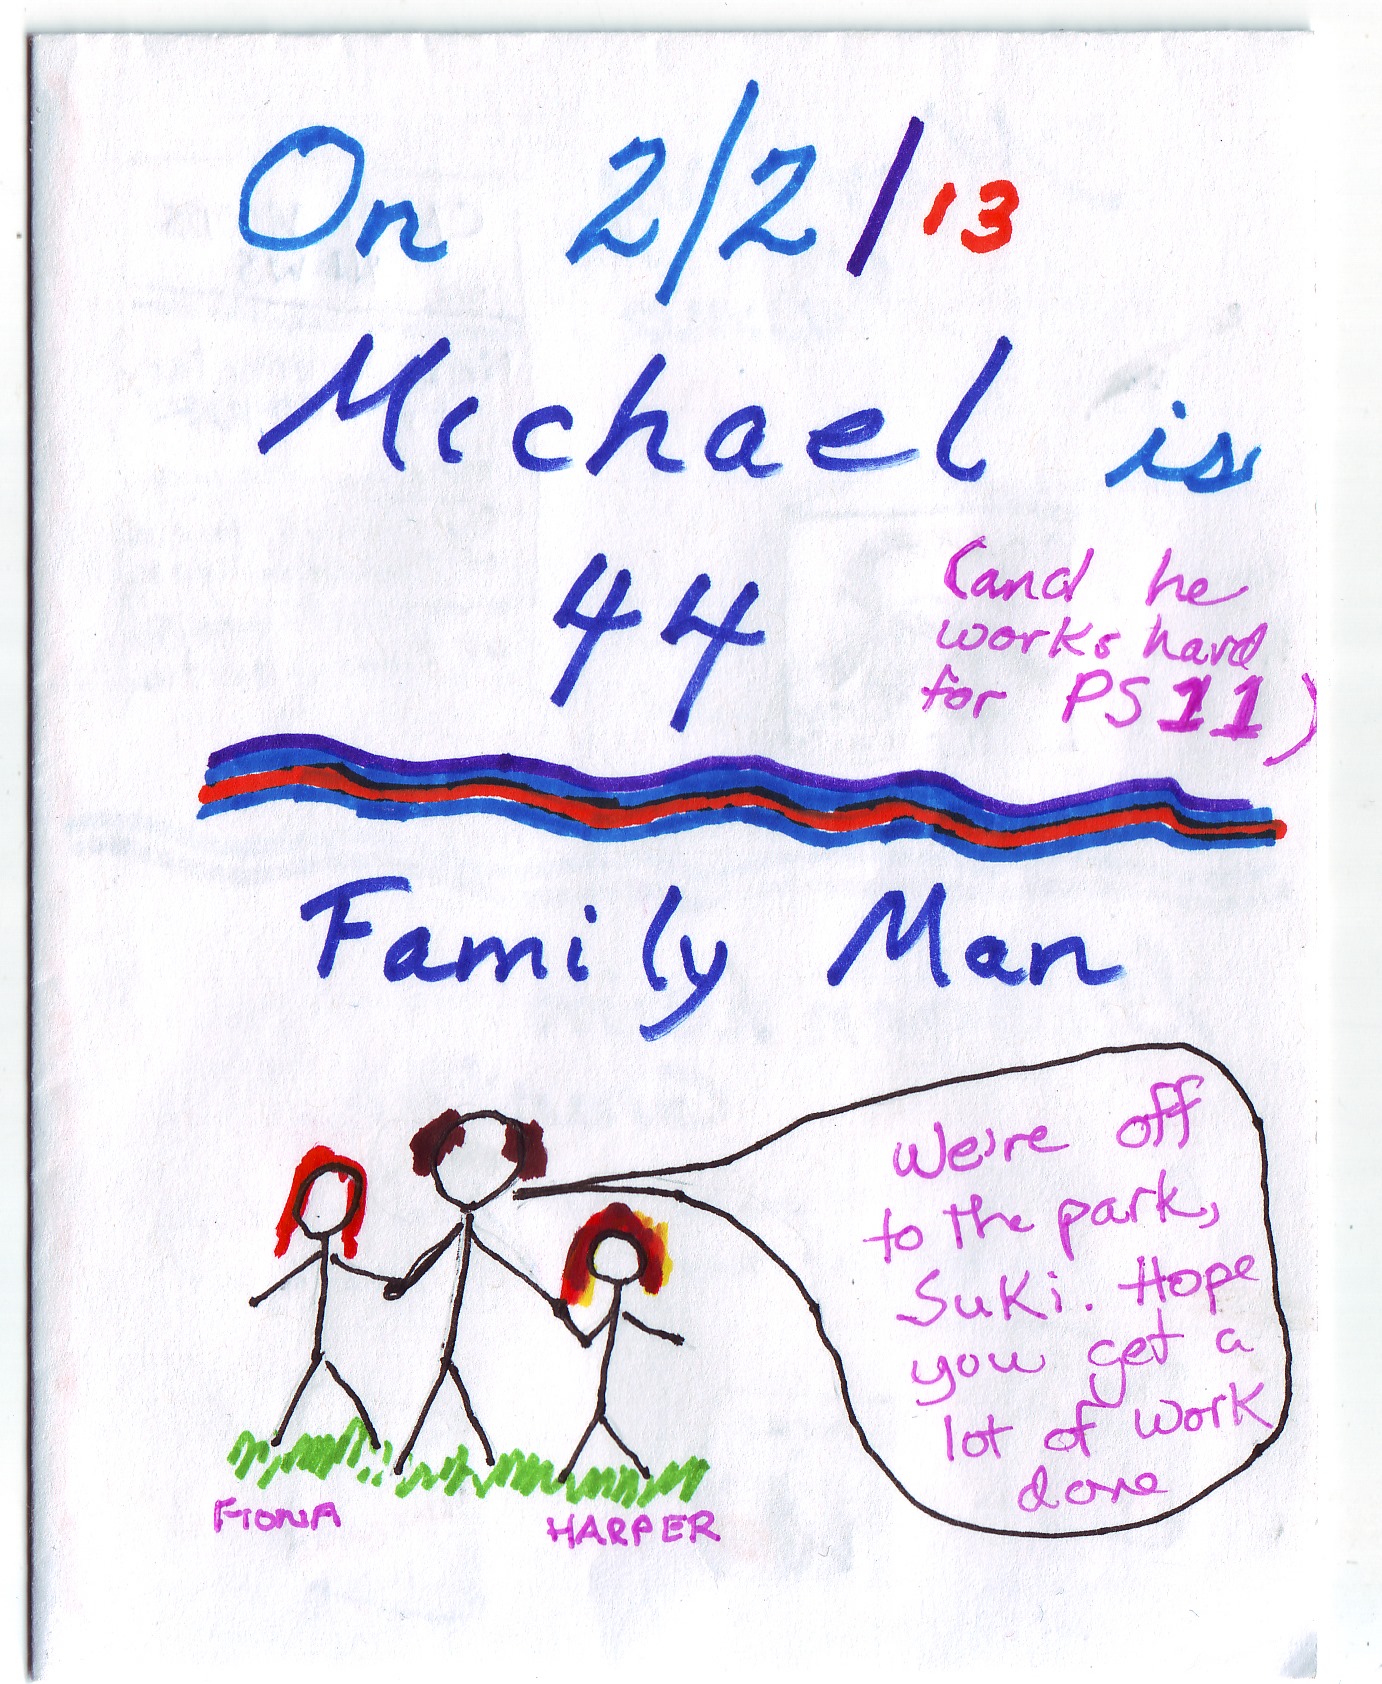 On 2/2/13
Michael is
44
(and he
works hard
for PS 11)
Family Man
We're off
to the park,
Suki. Hope
you get a
lot of work
done
FIONA
HARPER